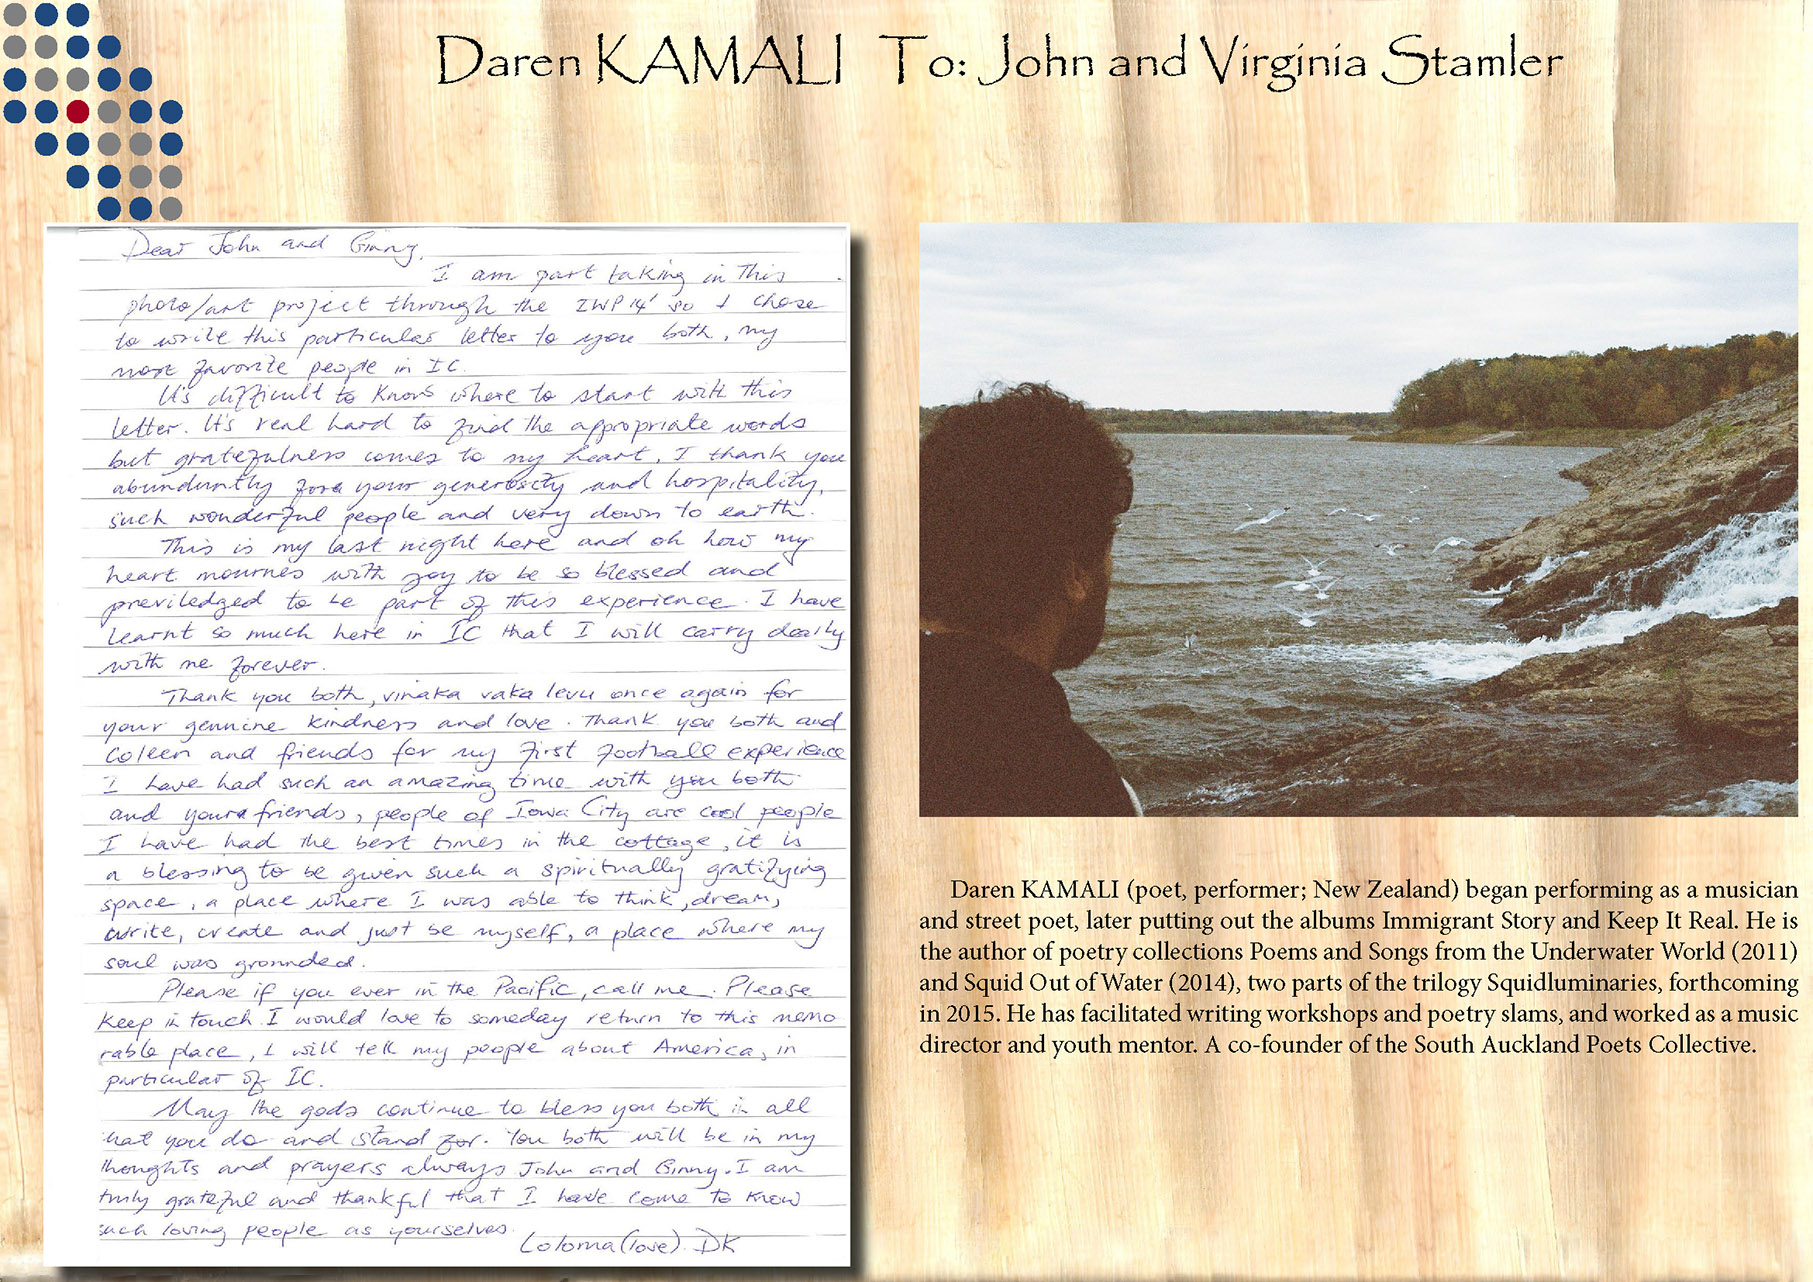 Daren KAMALI To: John and Virginia Stamler
Dear John and Ginny,
I am part taking in this
photo/art project through the IWP 14' so I chose
to write this particular letter to you both, my
most favorite people in IC.
It's difficult to know where to start with this
letter. It's real hard to find the appropriate words
but gratefulness comes to my heart, I thank you
abunduntly for your generosity and hospitality,
such wonderful people and very down to earth.
This is my last night here and oh how my
heart mournes with joy to be so blessed and
previledged to be part of this experience. I have
learnt so much here in IC that I will carry dearly
with me forever.
Thank you both, vinaka vaka levu once again for
your genuine kindness and love. Thank you both and
Coleen and friends for my first football experience
I have had such an amazing time with you both
and your friends, people of Iowa City are cool people
I have had the best times in the cottage, it is
a blessing to be given such a spiritually gratifying
space, a place where I was able to think, dream,
write, create and just be myself, a place where my
soul was grounded.
Please if you ever in the Pacific, call me. Please
keep in touch. I would love to someday return to this memo
rable place, I will tell my people about America, in
particular of IC.
May the gods continue to bless you both in all
hat you do and stand for. You both will be in my
thoughts and prayers always John and Ginny. I am
truly grateful and thankful that I have come to know
such loving people as yourselves.
Loloma (love) DK
Daren KAMALI (poet, performer; New Zealand) began performing as a musician
and street poet, later putting out the albums Immigrant Story and Keep It Real. He is
the author of poetry collections Poems and Songs from the Underwater World (2011)
and Squid Out of Water (2014), two parts of the trilogy Squidluminaries, forthcoming
in 2015. He has facilitated writing workshops and poetry slams, and worked as a music
director and youth mentor. A co-founder of the South Auckland Poets Collective.